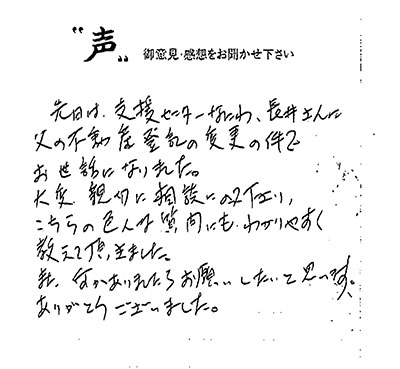 "声" 御意見・感想をお聞かせ下さい
先日は、支援センターなにわ、長井さんに
父の不動産登記の変更の件で
お世話になりました。
大変親切に相談にのって下さり、
こちらの色んな質問にもわかりやすく
教えて頂きました。
また、何かありましたらお願いしたいと思います。
ありがとうございました。